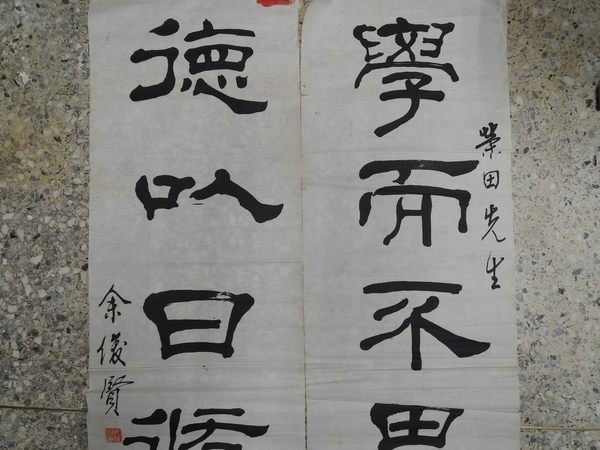 榮田先生
學而不
德以日
余俊賢